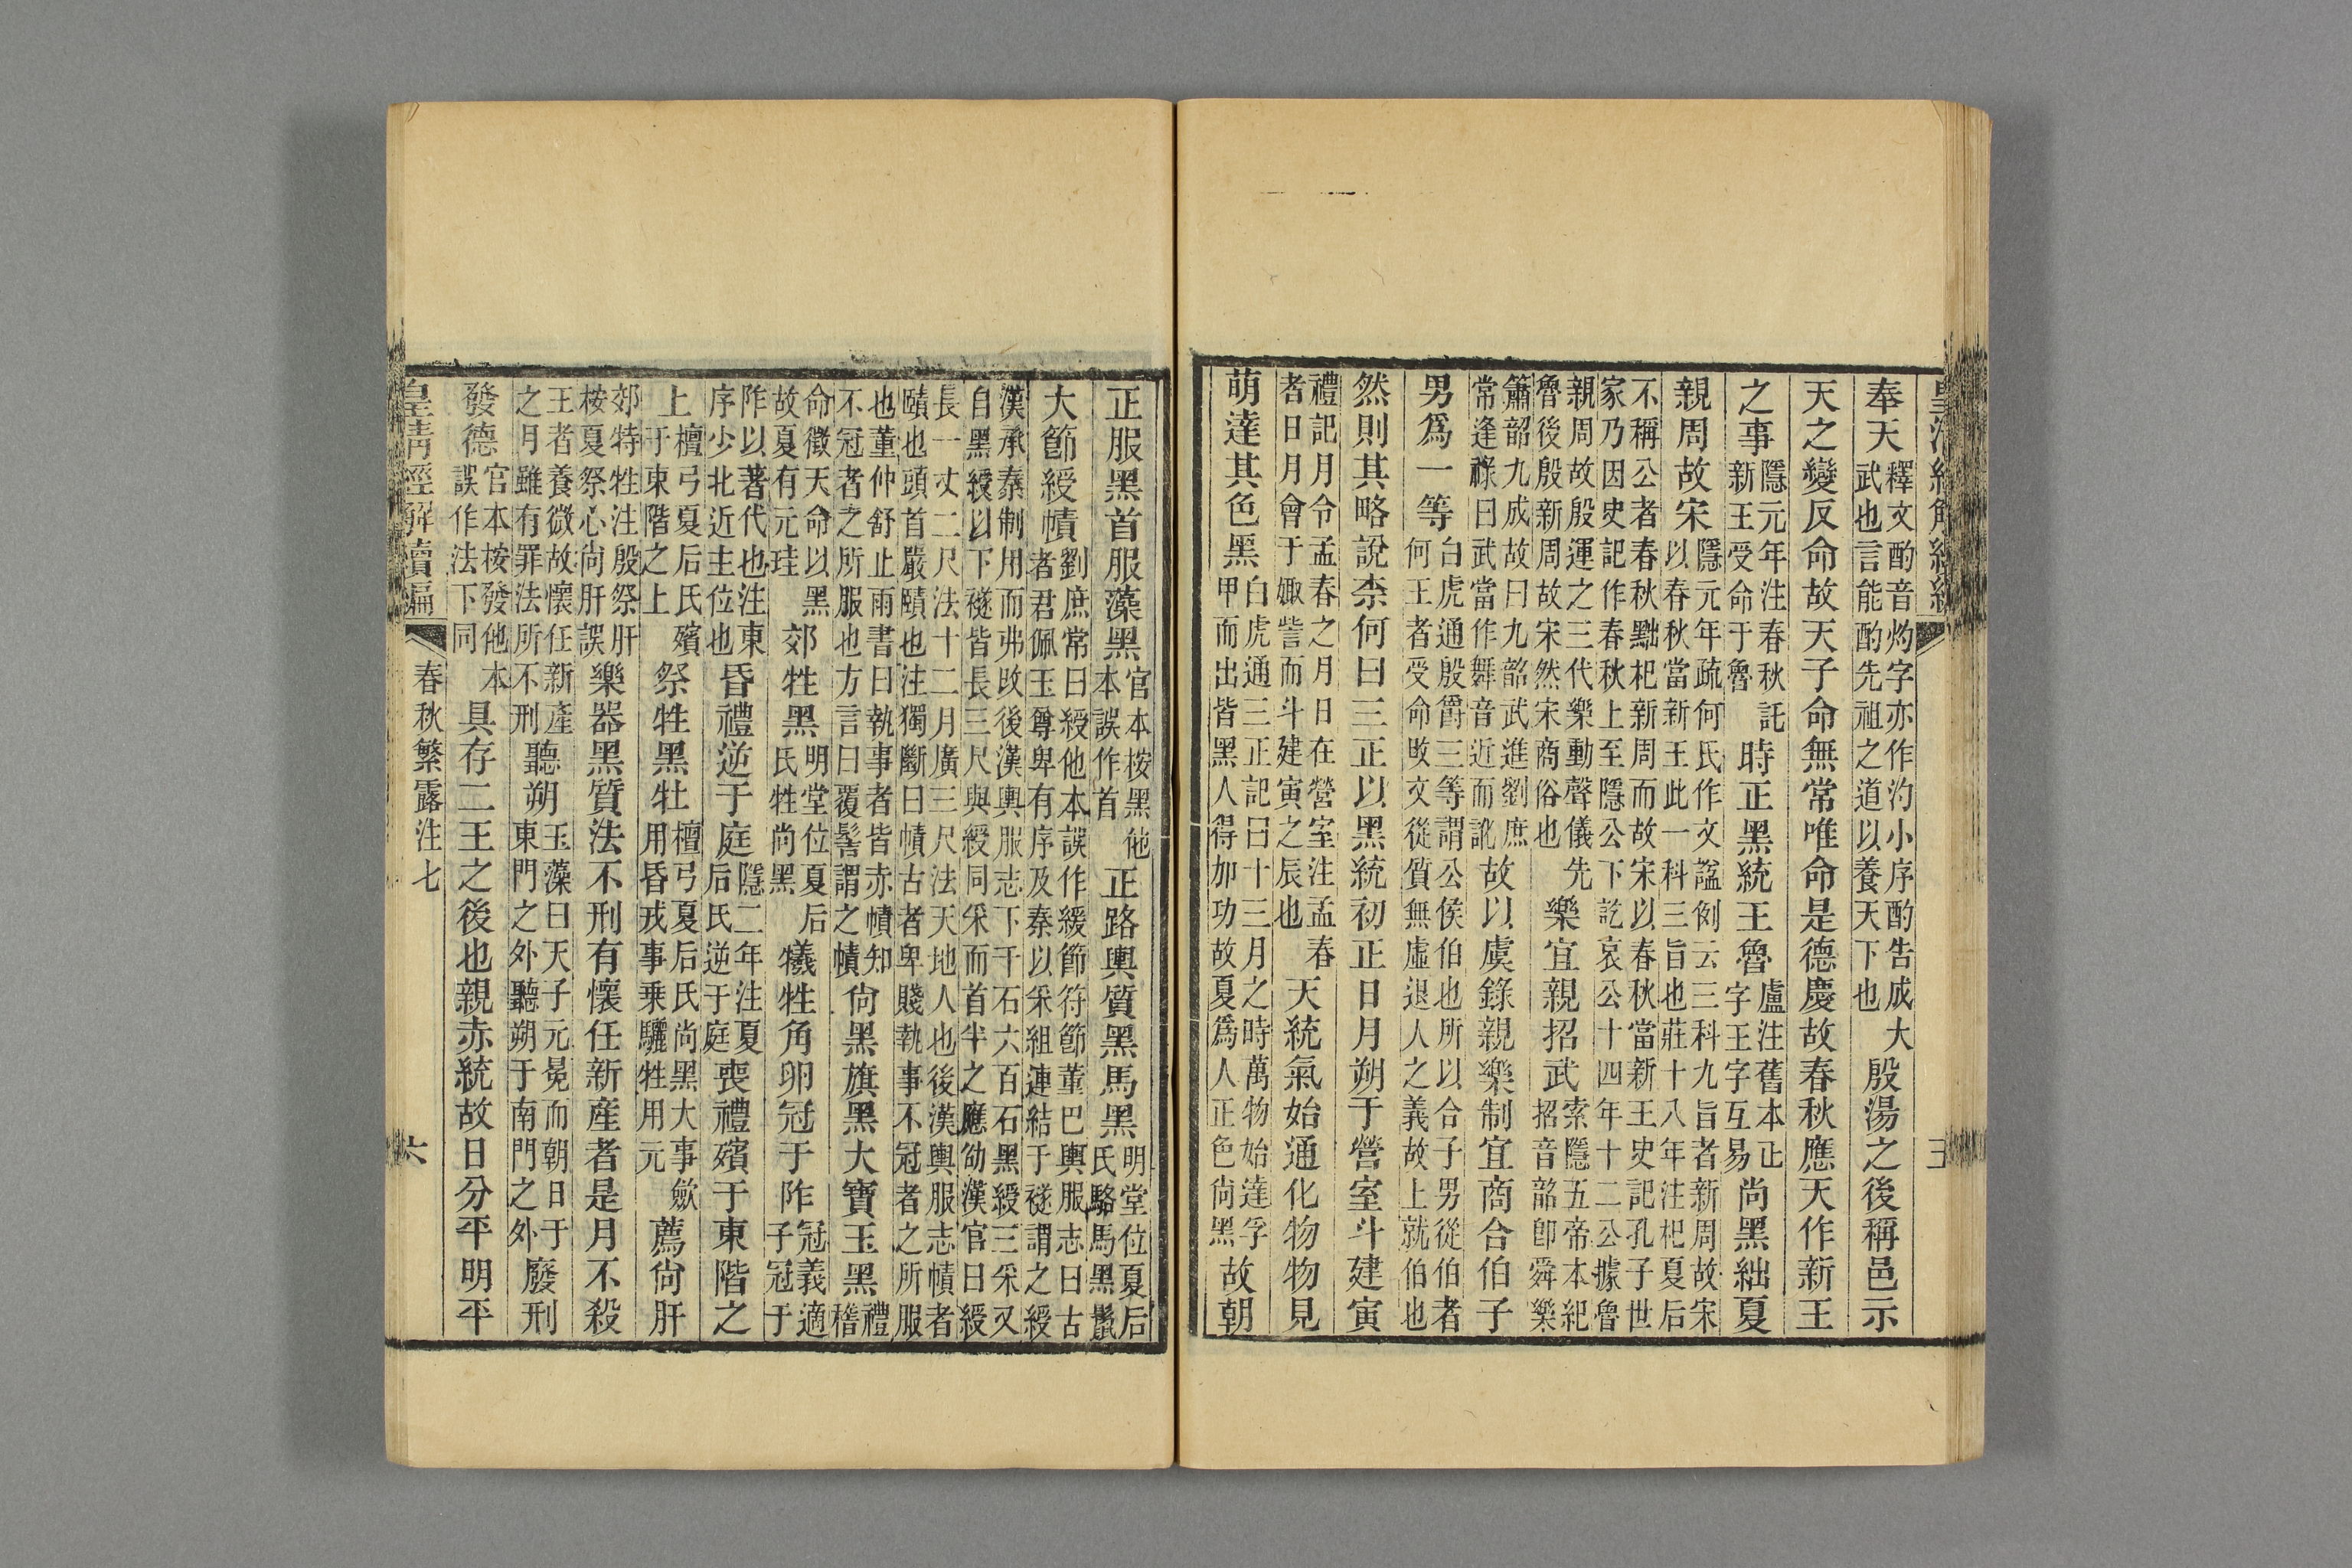 皇清經解續編
奉天釋文酌音灼字亦作汋小序酌告成大
武也言能酌先祖之道以養天下也殷湯之後稱邑示
天之變反命故天子命無常唯命是德慶故春秋應天作新王
之事隱元年注春秋託
新王受命于魯時正黑統王魯盧注舊本正
字王字互易尚黑絀夏
親周故宋隱元年疏何氏作文諡例云三科九旨者新周故宋
以春秋當新王此一科三旨也莊十八年注杞夏后
不稱公者春秋黜杞新周而故宋以春秋當新王史記孔子世
家乃因史記作春秋上至隱公下訖哀公十四年十二公據魯
親周故殷運之三代樂動聲儀先
魯後殷新周故宋然宋商俗也樂宜親招武索隱五帝本紀
招音韶卽舜樂
簫韶九成故曰九韶武進劉庶
常逢祿曰武當作舞音近而訛故以虞錄親樂制宜商合伯子
男爲一等白虎通殷爵三等謂公侯伯也所以合子男從伯者
何王者受命改文從質無虛退人之義故上就伯也
然則其略說柰何曰三正以黑統初正日月朔于營室斗建寅
禮記月令孟春之月日在營室注孟春
者日月會于娵訾而斗建寅之辰也天統氣始通化物物見
萌達其色黑白虎通三正記曰十三月之時萬物始達孚
甲而出皆黑人得加功故夏爲人正色尚黑故朝
正服黑首服藻黑官本桉黑他
本誤作首正路輿質黑馬黑明堂位夏后
氏駱馬黑鬛
大節綬幘劉庶常曰綬他本誤作緩節符節董巴輿服志曰古
者君佩玉尊卑有序及秦以采組連結于襚謂之綬
漢承秦制用而弗改後漢輿服志下千石六百石黑綬三采又
自黑綬以下襚皆長三尺與綬同采而首半之應劭漢官曰綬
長一丈二尺法十二月廣三尺法天地人也後漢輿服志幘者
賾也頭首嚴賾也注獨斷曰幘古者卑賤執事不冠者之所服
也董仲舒止雨書曰執事者皆赤幘知
不冠者之所服也方言曰覆髻謂之幘尙黑旗黑大寶玉黑禮
稽
命徵天命以黑
故夏有元珪郊牲黑明堂位夏后
氏牲尚黑犧牲角卵冠于阼冠義適
子冠于
阼以著代也注東
序少北近主位也昏禮逆于庭隱二年注夏
后氏逆于庭喪禮殯于東階之
上檀弓夏后氏殯
于東階之上祭牲黑牡檀弓夏后氏尚黑大事斂
用昏戎事乘驪牲用元薦尙肝
郊特牲注殷祭肝
桉夏祭心尚肝誤樂器黑質法不刑有懷任新産者是月不殺
王者養微故懷任新産
之月雖有罪法所不刑聽朔玉藻曰天子元冕而朝日于
東門之外聽朔于南門之外廢刑
發德官本桉發他本
誤作法下同具存二王之後也親赤統故日分平明平
皇清經解續編 春秋繁露注七 六